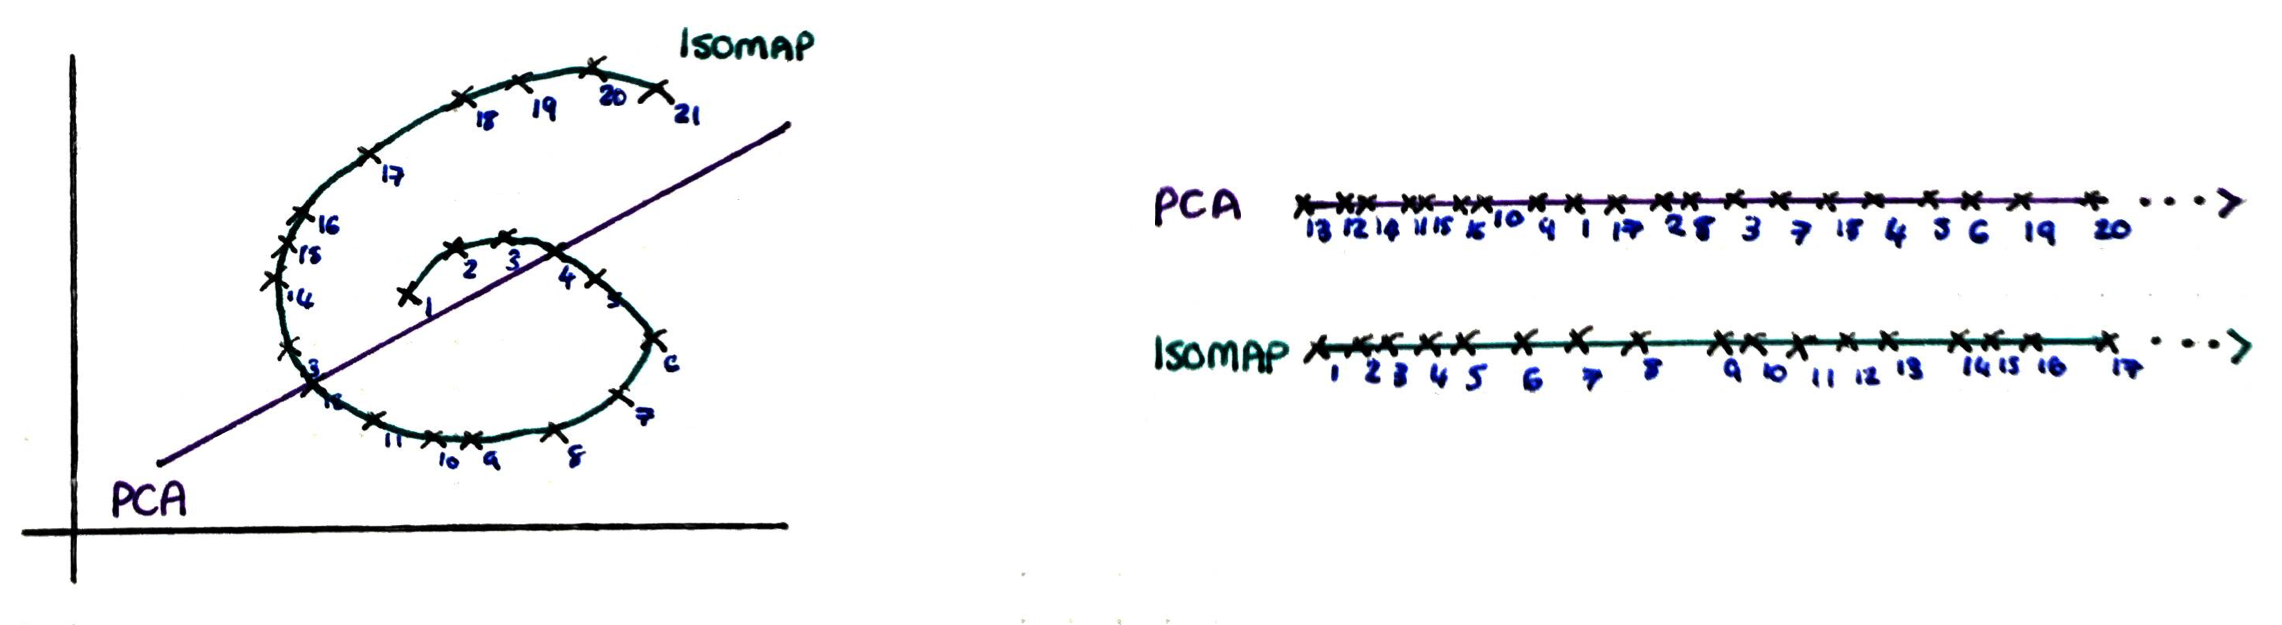 ISOMAP
18 19 20 21
17
16
15
14
2 3 4 5
1
6
3
12
7
11 10 9 8
PCA
PCA 13 12 14 11 15 16 10 9 1 17 2 8 3 7 18 4 5 6 19 20 ....>
ISOMAP 1 2 3 4 5 6 7 8 9 10 11 12 13 14 15 16 17 ....>